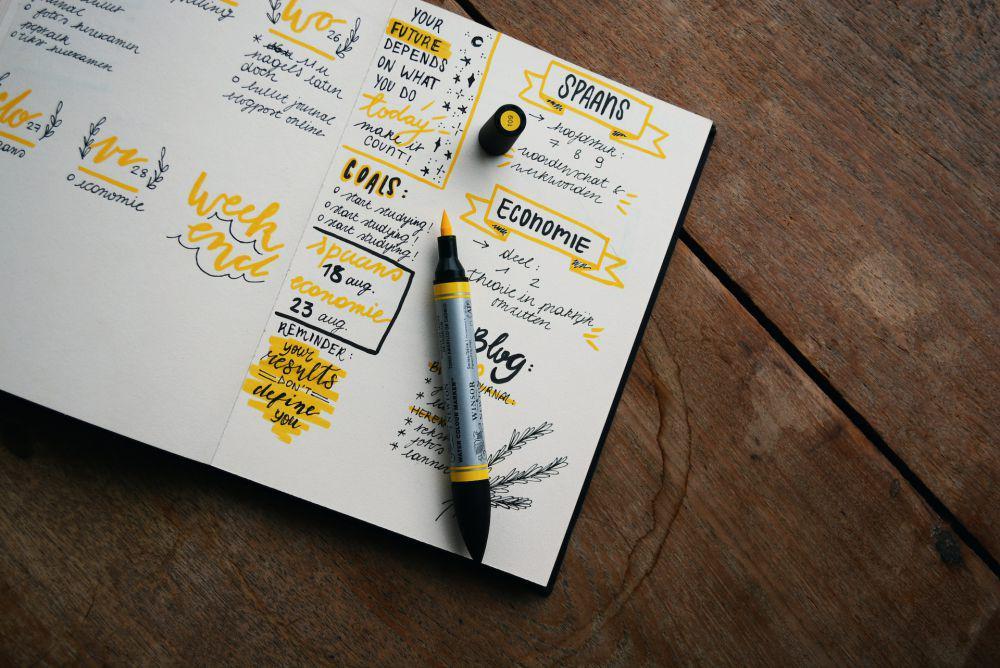 foto's herexamen
herexamen
wo 26
nagels laten
doen
o bullet journal
blogpost online
do 27
vr 28
o economie
week
end
YOUR
FUTURE
DEPENDS
ON WHAT
YOU DO
today
make it
COUNT!
GOALS:
o start studying!
o start studying!
o start studying!
spaans
18 aug.
economie
23 aug.
REMINDER:
your
results
DON'T
define
you
SPAANS
→ hoofdstuk:
7 8 9
woordenschat &
werkwoorden
ECONOMIE
→ deel:
1 2
theorie in praktijk
omzetten
Blog:
109
WATER COLOUR MARKER
WINSOR